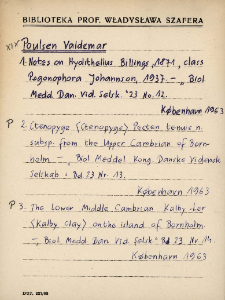 BIBLIOTEKA PROF. WŁADYSŁAWA SZAFERA
XIV Poulsen Valdemar
1. Notes on Hyolithellus Billings, 1871, class
Pogonophora Johannson, 1937. — „ Biol
Medd. Dan. Vid. Selsk." 23 No. 12.
København 1963
P 2. Ctenopyge (Ctenopyge) Pecten tenuis n.
subsp. from the Upper Cambrian of Born-
holm — „ Biol Meddel Kong. Danske Videnk
Selskab" Bd. 23 Nr. 13.
København 1963
P 3. The Lower Middle Cambrian Kalby-ler
(Kalby Clay) on the island of Bornholm.
— „ Biol. Medd. Dan. Vid. Selsk" Bd 23 Nr. 14.
København 1963